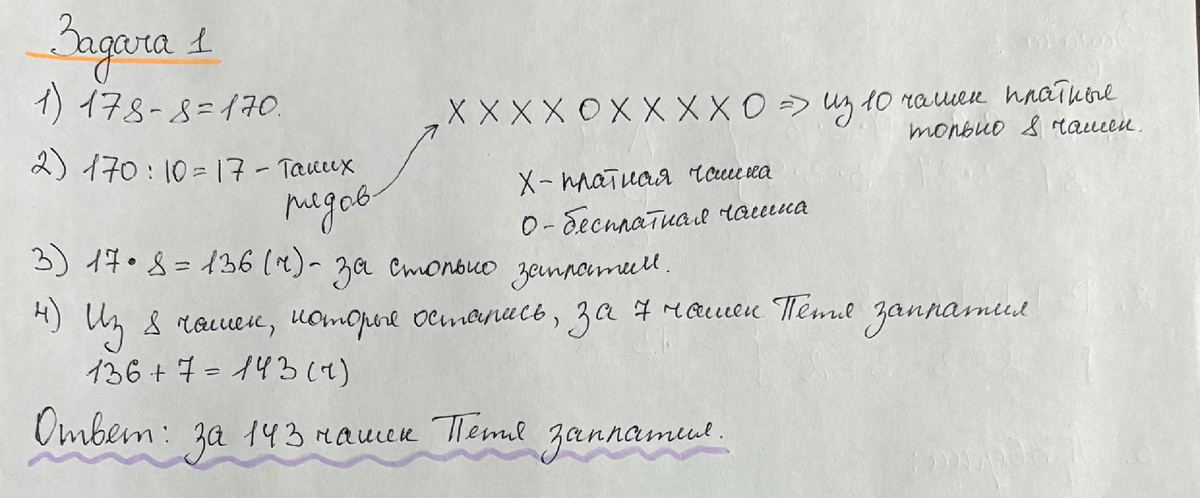 Задача 1
1) 178 - 8 = 170.
X X X X O X X X X O => из 10 чашек платные
только 8 чашек.
2) 170 : 10 = 17 - таких
рядов
X - платная чашка
O - бесплатная чашка
3) 17 • 8 = 136 (ч) - за столько заплатили.
4) Из 8 чашек, которые остались, за 7 чашек Петя заплатил
136 + 7 = 143 (ч)
Ответ: за 143 чашек Петя заплатил.